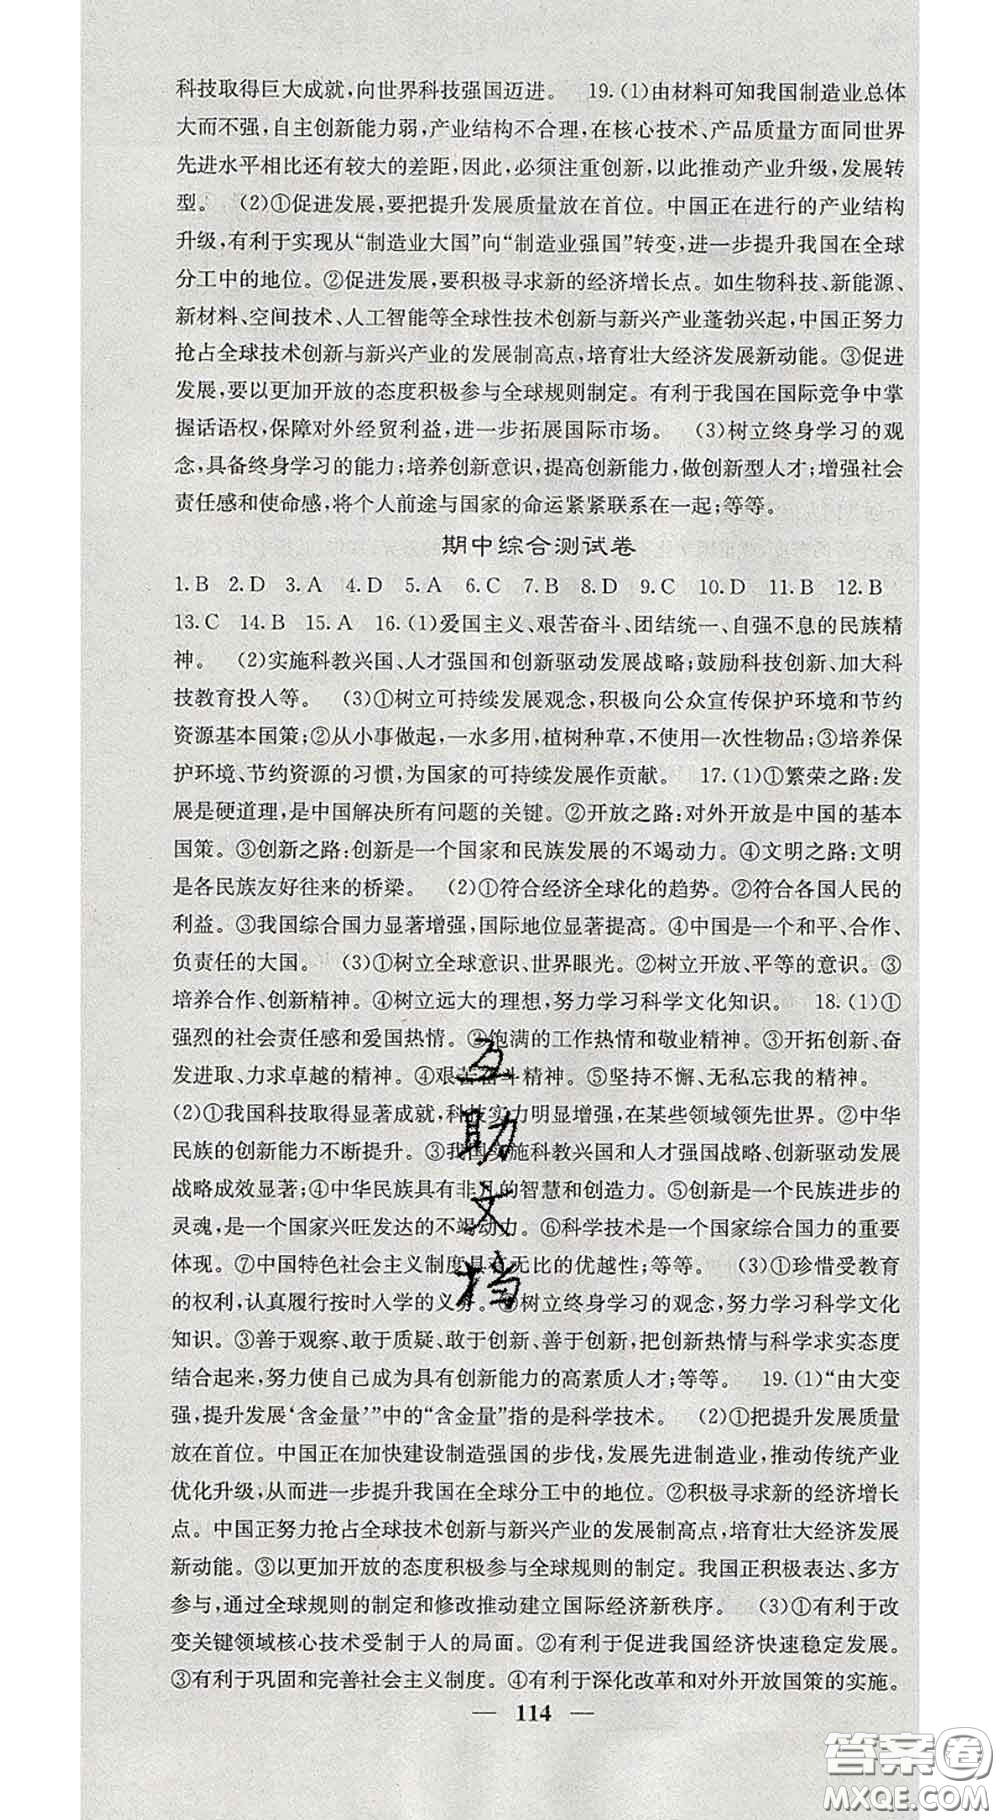 科技取得巨大成就,向世界科技强国迈进。 19.(1)由材料可知我国制造业总体
大而不强,自主创新能力弱,产业结构不合理,在核心技术、产品质量方面同世界
先进水平相比还有较大的差距,因此,必须注重创新,以此推动产业升级,发展转
型。 (2)①促进发展,要把提升发展质量放在首位。中国正在进行的产业结构
升级,有利于实现从“制造业大国”向“制造业强国”转变,进一步提升我国在全球
分工中的地位。②促进发展,要积极寻求新的经济增长点。如生物科技、新能源、
新材料、空间技术、人工智能等全球性技术创新与新兴产业蓬勃兴起,中国正努力
抢占全球技术创新与新兴产业的发展制高点,培育壮大经济发展新动能。③促进
发展,要以更加开放的态度积极参与全球规则制定。有利于我国在国际竞争中掌
握话语权,保障对外经贸利益,进一步拓展国际市场。 (3)树立终身学习的观
念,具备终身学习的能力;培养创新意识,提高创新能力,做创新型人才;增强社会
责任感和使命感,将个人前途与国家的命运紧紧联系在一起;等等。
期中综合测试卷
1.B 2.D 3.A 4.D 5.A 6.C 7.B 8.D 9.C 10.D 11.B 12.B
13.C 14.B 15.A 16.(1)爱国主义、艰苦奋斗、团结统一、自强不息的民族精
神。 (2)实施科教兴国、人才强国和创新驱动发展战略;鼓励科技创新、加大科
技教育投入等。 (3)①树立可持续发展观念,积极向公众宣传保护环境和节约
资源基本国策;②从小事做起,一水多用,植树种草,不使用一次性物品;③培养保
护环境、节约资源的习惯,为国家的可持续发展作贡献。 17.(1)①繁荣之路:发
展是硬道理,是中国解决所有问题的关键。②开放之路:对外开放是中国的基本
国策。③创新之路:创新是一个国家和民族发展的不竭动力。④文明之路:文明
是各民族友好往来的桥梁。 (2)①符合经济全球化的趋势。②符合各国人民的
利益。③我国综合国力显著增强,国际地位显著提高。④中国是一个和平、合作、
负责任的大国。 (3)①树立全球意识、世界眼光。②树立开放、平等的意识。③
培养合作、创新精神。④树立远大的理想,努力学习科学文化知识。 18.(1)①
强烈的社会责任感和爱国热情。②饱满的工作热情和敬业精神。③开拓创新、奋
发进取、力求卓越的精神。④艰苦奋斗精神。⑤坚持不懈、无私忘我的精神。
(2)①我国科技取得显著成就,科技实力明显增强,在某些领域领先世界。②中华
民族的创新能力不断提升。③我国实施科教兴国和人才强国战略、创新驱动发展
战略成效显著;④中华民族具有非凡的智慧和创造力。⑤创新是一个民族进步的
灵魂,是一个国家兴旺发达的不竭动力。⑥科学技术是一个国家综合国力的重要
体现。⑦中国特色社会主义制度具有无比的优越性;等等。 (3)①珍惜受教育
的权利,认真履行按时入学的义务。②树立终身学习的观念,努力学习科学文化
知识。③善于观察、敢于质疑、敢于创新、善于创新,把创新热情与科学求实态度
结合起来,努力使自己成为具有创新能力的高素质人才;等等。 19.(1)“由大变
强,提升发展‘含金量’”中的“含金量”指的是科学技术。 (2)①把提升发展质量
放在首位。中国正在加快建设制造强国的步伐,发展先进制造业,推动传统产业
优化升级,进一步提升我国在全球分工中的地位。②积极寻求新的经济增长
点。中国正努力抢占全球技术创新与新兴产业的发展制高点,培育壮大经济发展
新动能。③以更加开放的态度积极参与全球规则的制定。我国正积极表达、多方
参与,通过全球规则的制定和修改推动建立国际经济新秩序。 (3)①有利于改
变关键领域核心技术受制于人的局面。②有利于促进我国经济快速稳定发展。
③有利于巩固和完善社会主义制度。④有利于深化改革和对外开放国策的实施。
— 114 —
互助文档
答案圈
MXQE.COM